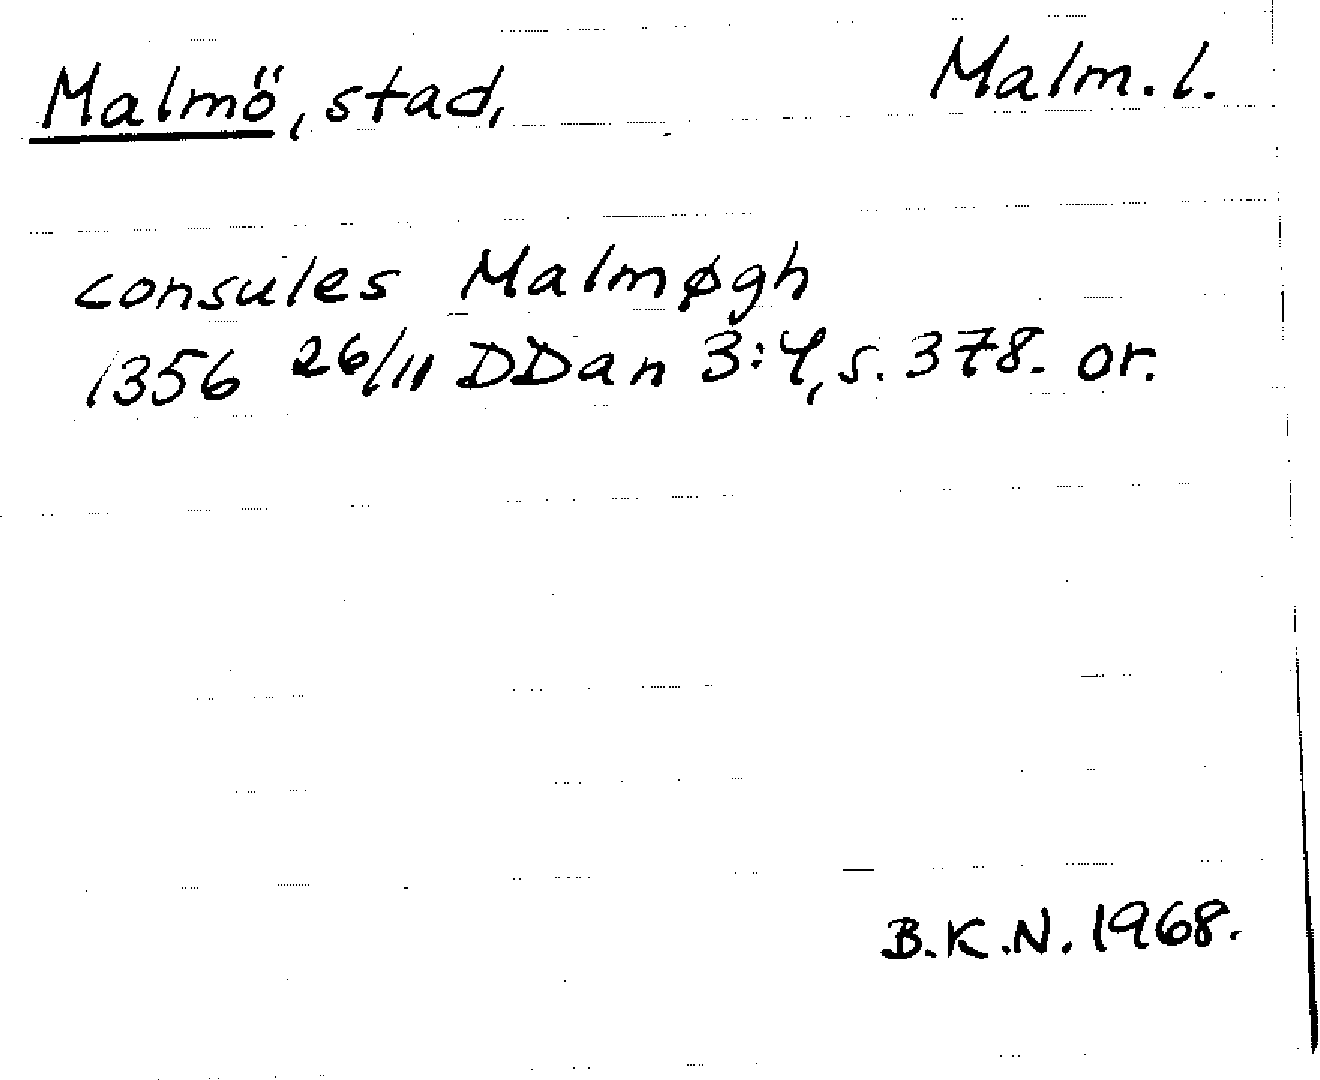 Malmö, stad, Malm. l.
consules Malmøgh
1356 26/11 DDan 3:4, s. 378. or.
B.K.N. 1968.